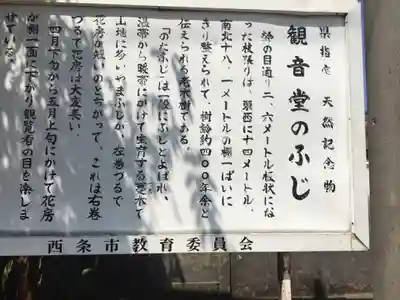 県指定 天然記念物
観音堂のふじ
幹の目通り二、六メートル板状にな
った枝張りは、東西に十四メートル、
南北十八、一メートルの棚一ぱいに
きり整えられて、樹齢約四〇〇年余と
伝えられる老木樹である。
「のだふじ」は一般にふじとよばれ、
温帯から暖帯にかけて生育する。
山地に多いやまふじが、左巻づるで
花房が短いのとちがって、これは右巻
づるで花房は大変長い。
四月下旬から五月上旬にかけて花房
が棚一面に下がり観覧者の目を楽しま
せている。
西条市教育委員会